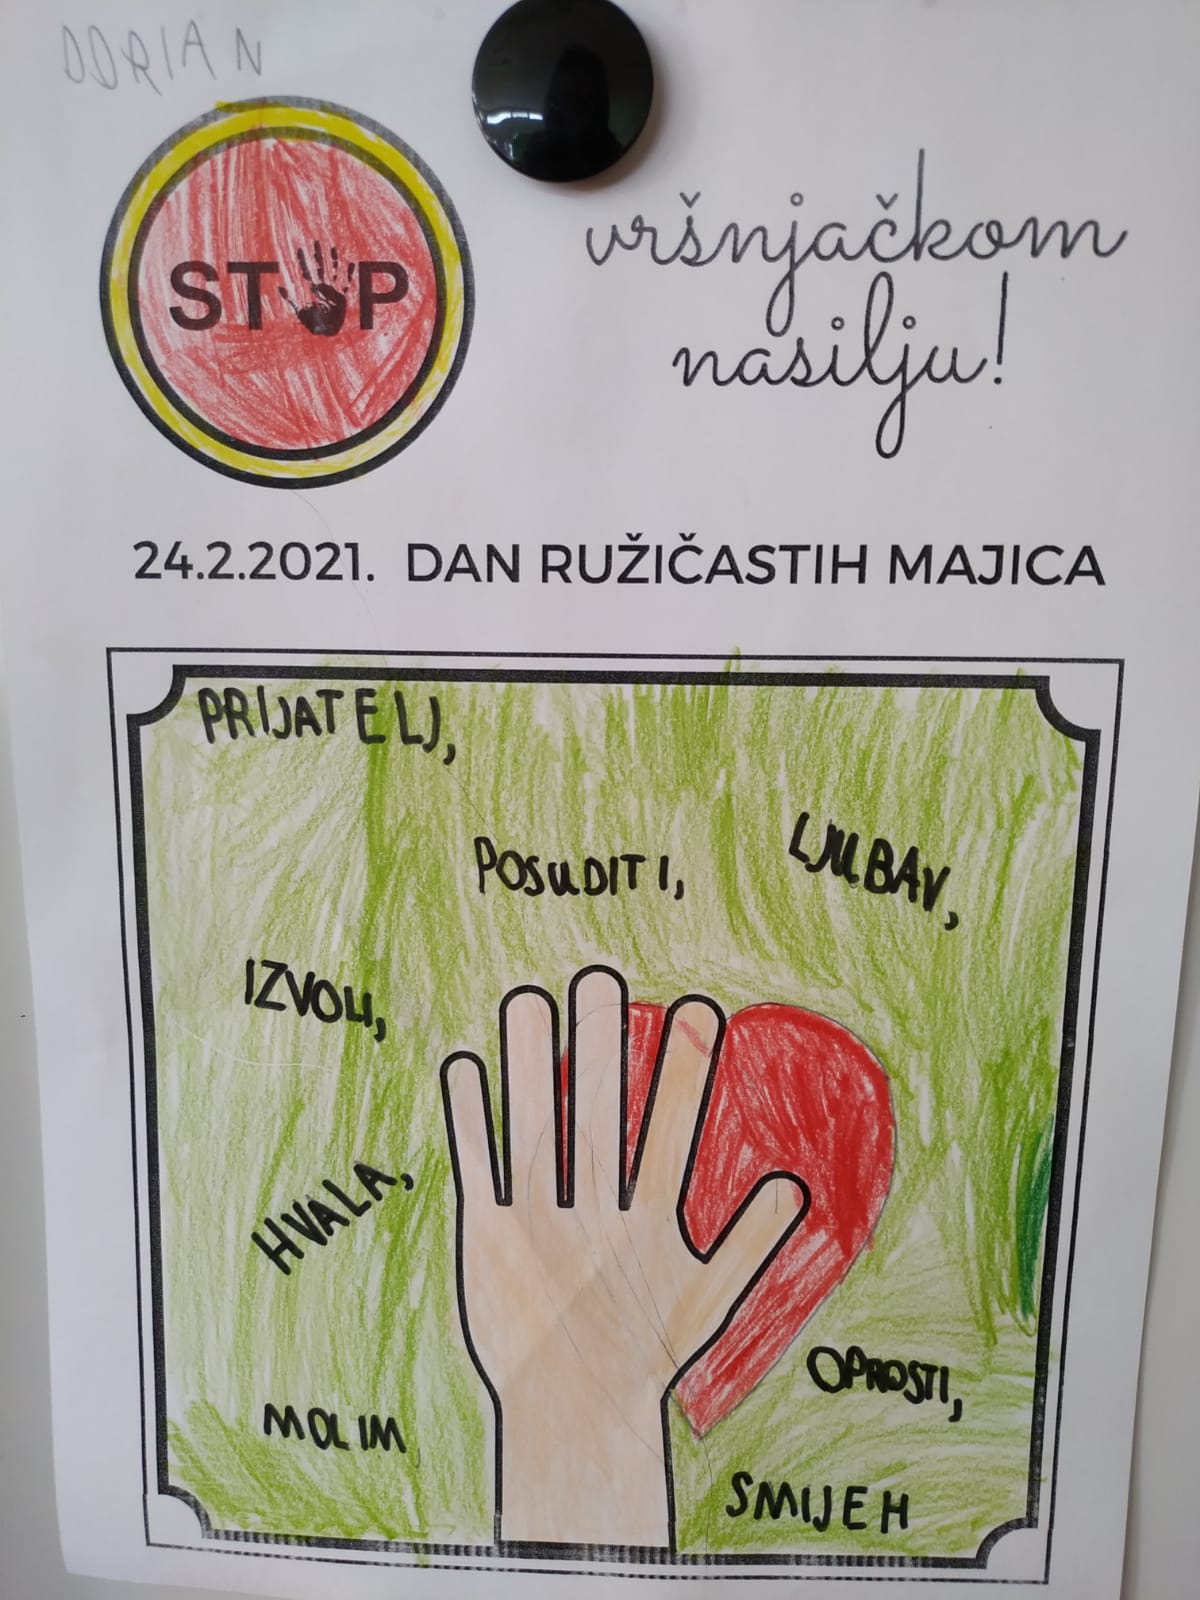 DORIAN
STOP
vršnjačkom
nasilju!
24.2.2021. DAN RUŽIČASTIH MAJICA
PRIJATELJ,
POSUDITI,
LJUBAV,
IZVOLI,
HVALA,
OPROSTI,
MOLIM
SMIJEH